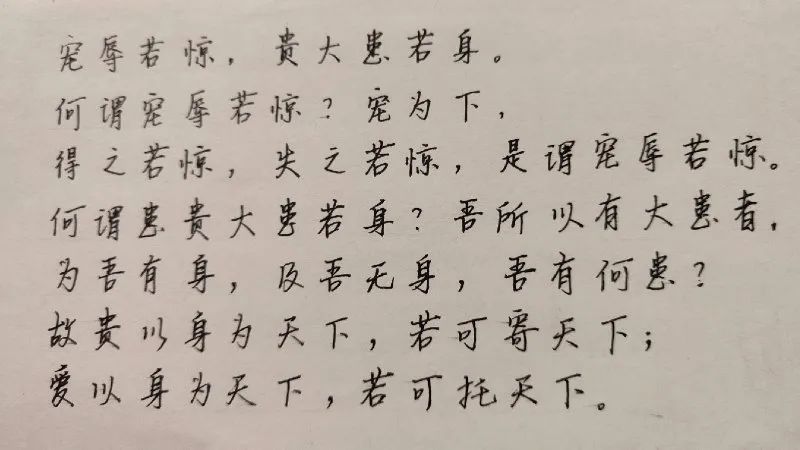 宠辱若惊，贵大患若身。
何谓宠辱若惊？宠为下，
得之若惊，失之若惊，是谓宠辱若惊。
何谓患贵大患若身？吾所以有大患者，
为吾有身，及吾无身，吾有何患？
故贵以身为天下，若可寄天下；
爱以身为天下，若可托天下。